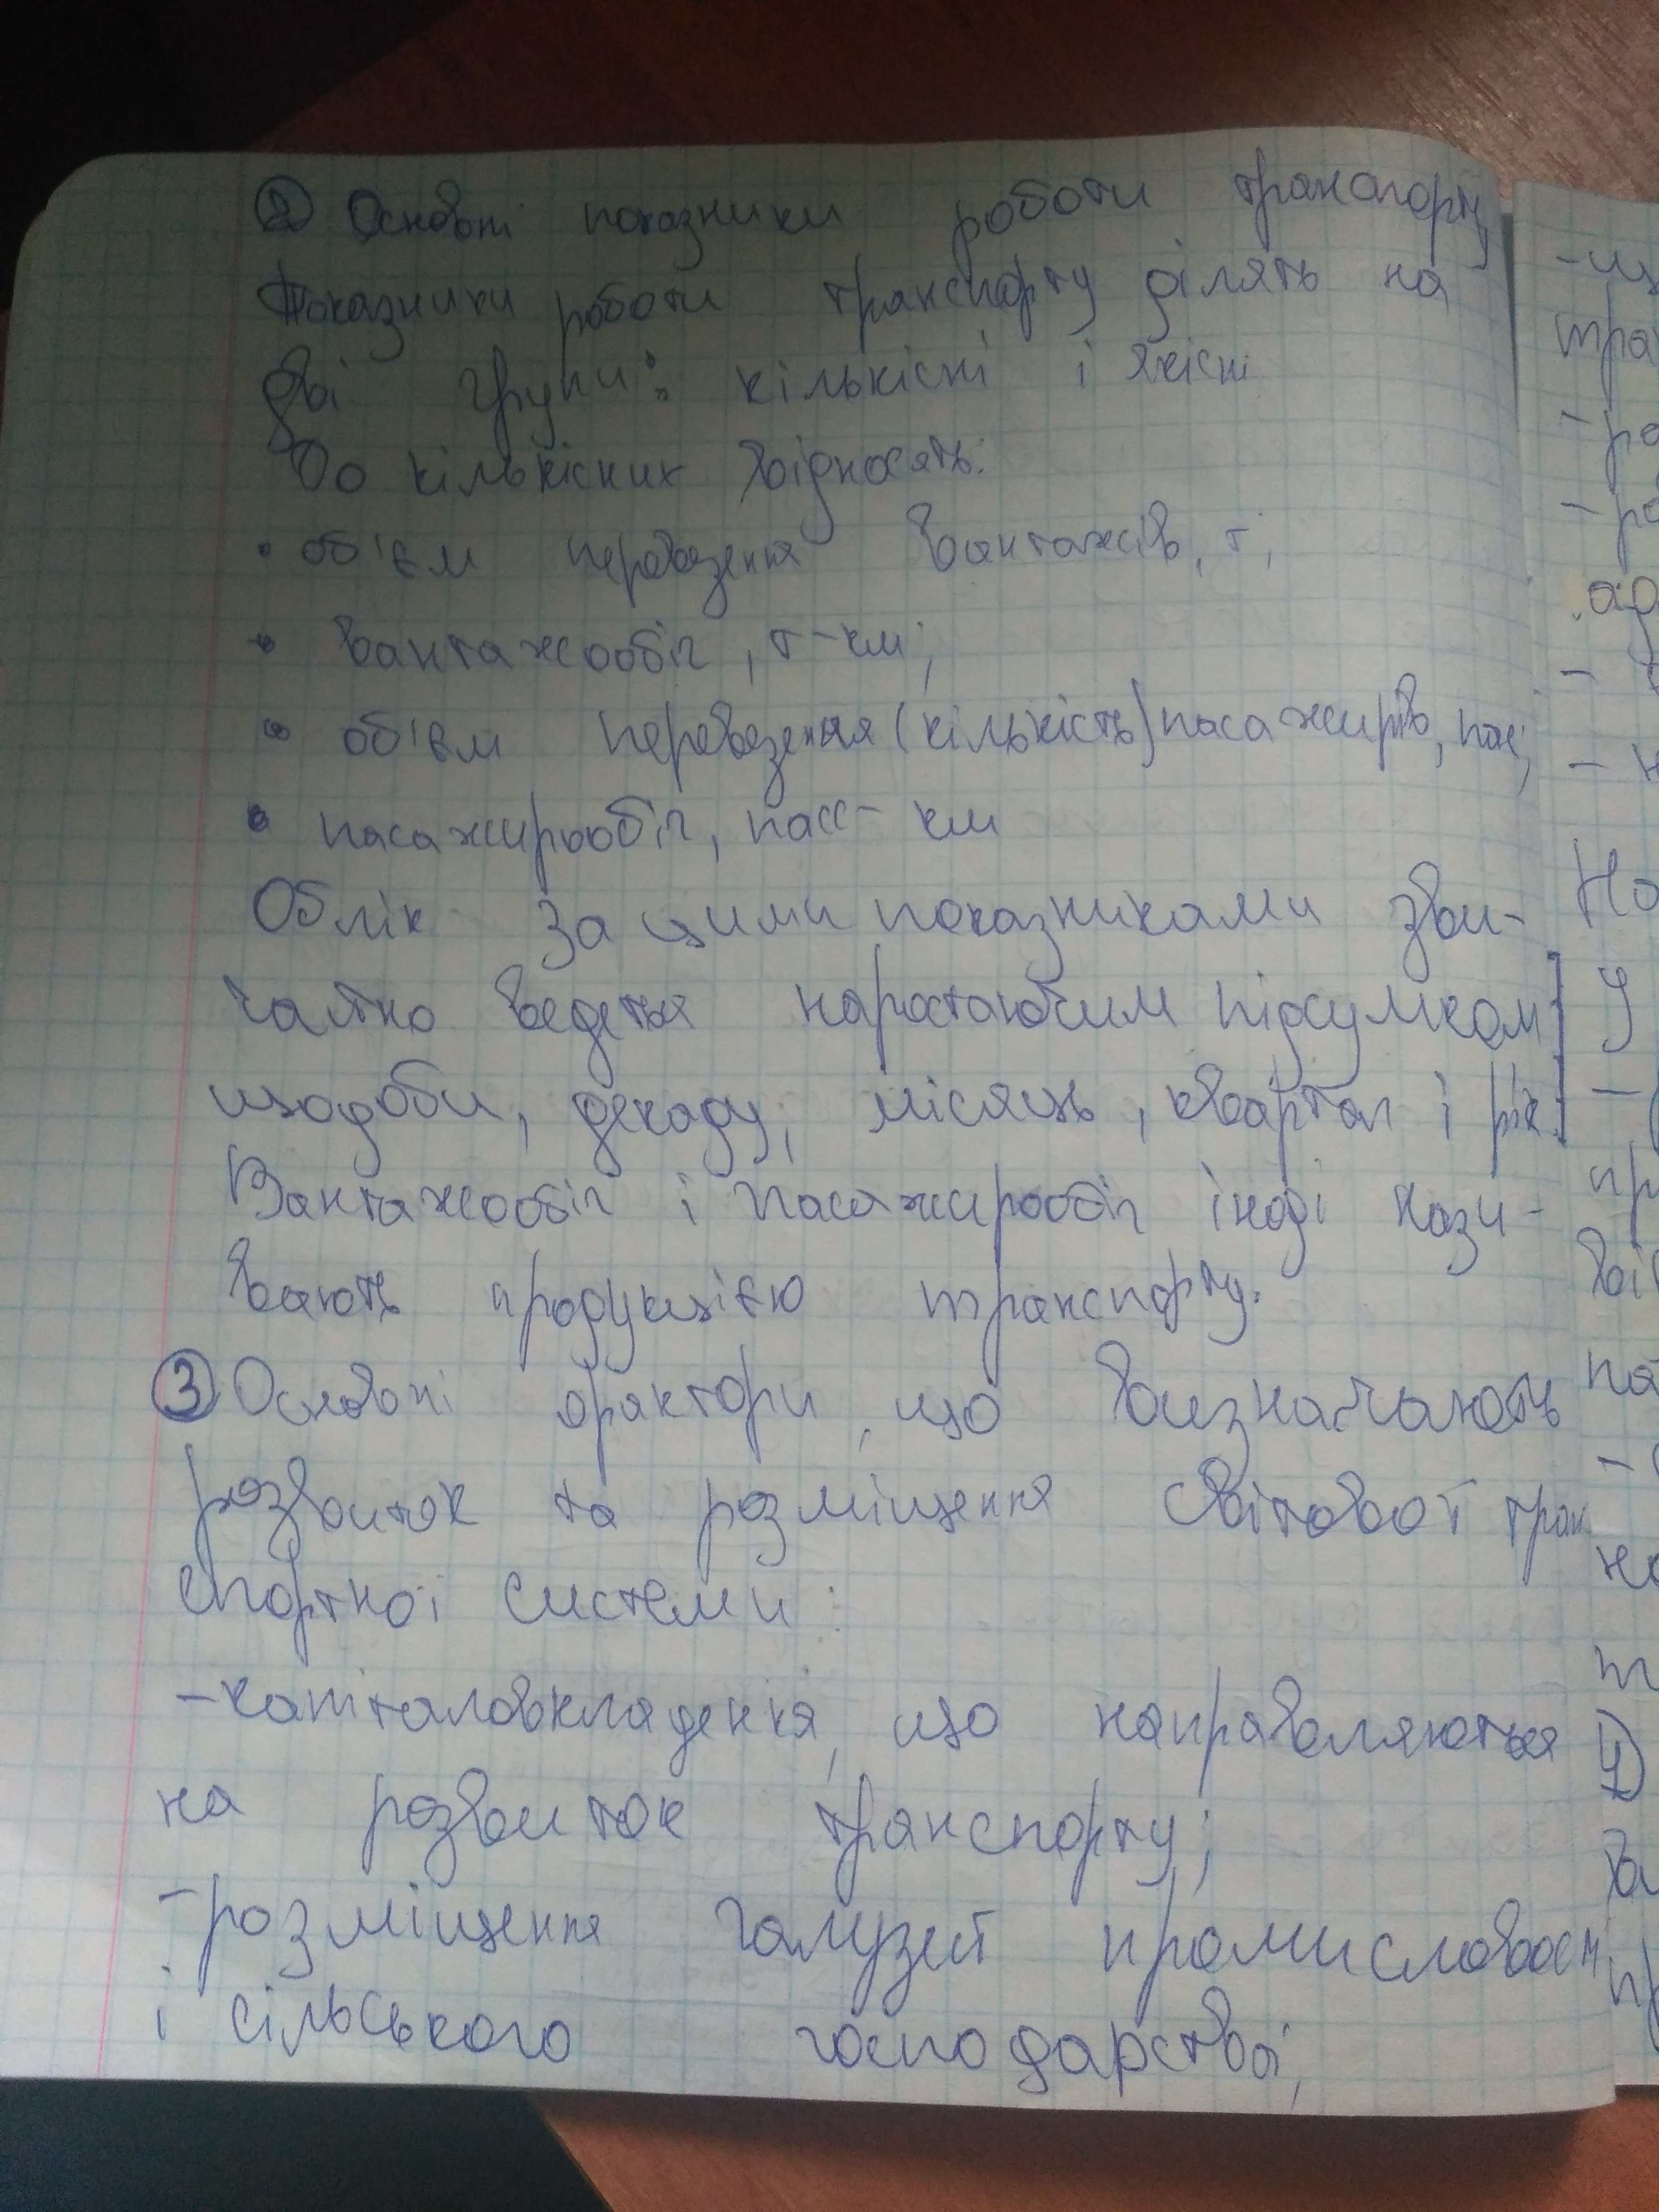 ② Основні показники роботи транспорту
Показники роботи транспорту ділять на
дві групи: кількісні і якісні
До кількісних відносять:
• об'єм перевезення вантажів, т;
• вантажообіг, т-км;
• об'єм перевезення (кількість) пасажирів, пас;
• пасажирообіг, пасс-км
Облік за цими показниками зви-
чайно ведеться наростаючим підсумком
щодоби, декаду, місяць, квартал і рік.
Вантажообіг і пасажирообіг іноді нази-
вають продукцією транспорту.
③ Основні фактори, що визначають
розвиток та розміщення світової тран
спортної системи:
-капіталовкладення, що направляються
на розвиток транспорту;
-розміщення галузей промисловості
і сільського господарства;